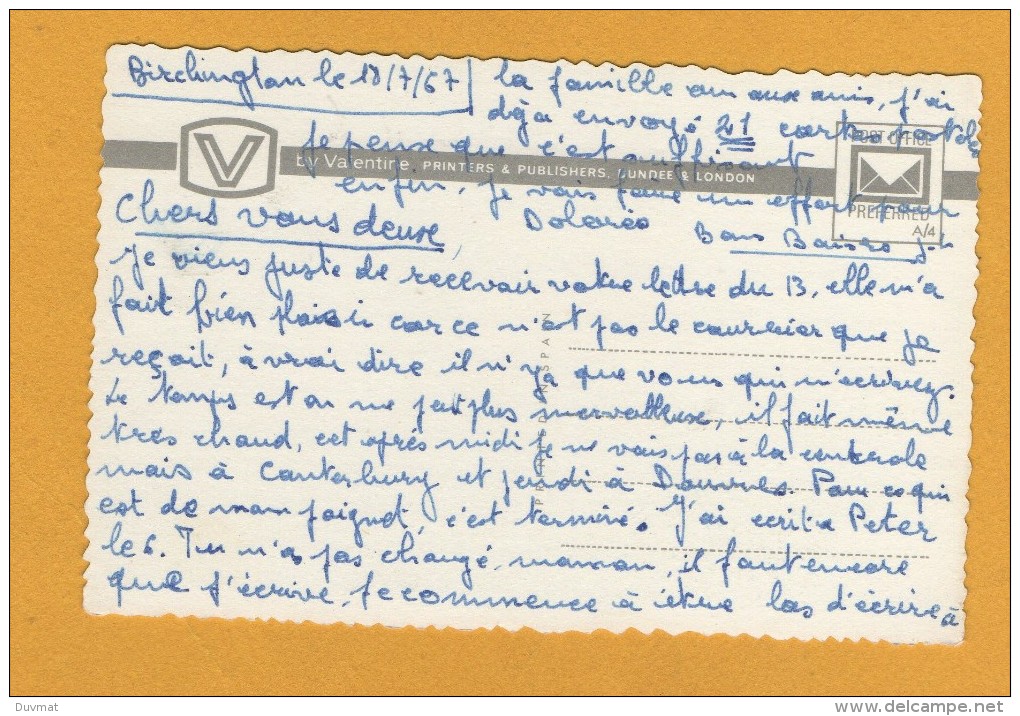 Birchington le 18/7/67
la famille ou aux amis, j'ai
déjà envoyé 21 cartes postales
je pense que c'est suffisant
enfin, je vais faire un effort pour
Dolorès Bons Baisers
POST OFFICE
PREFERRED
A/4
V
by Valentine, PRINTERS & PUBLISHERS, DUNDEE & LONDON
Chers vous deux,
Je viens juste de recevoir votre lettre du 13, elle m'a
fait bien plaisir car ce n'est pas le courrier que je
reçoit, à vrai dire il n'y a que vous qui m'écrivez.
Le temps est on ne peut plus merveilleuse, il fait même
très chaud, cet après midi je ne vais pas à la
mais à Canterbury et jeudi à Douvres. Pour ce qui
est de mon poignet, c'est terminé. J'ai écrit à Peter
le 6. Tu n'as pas changé, maman, il faut encore
que j'écrive, je commence à être las d'écrire à
PRINTED IN SPAIN
Duvmat
delcampe.net